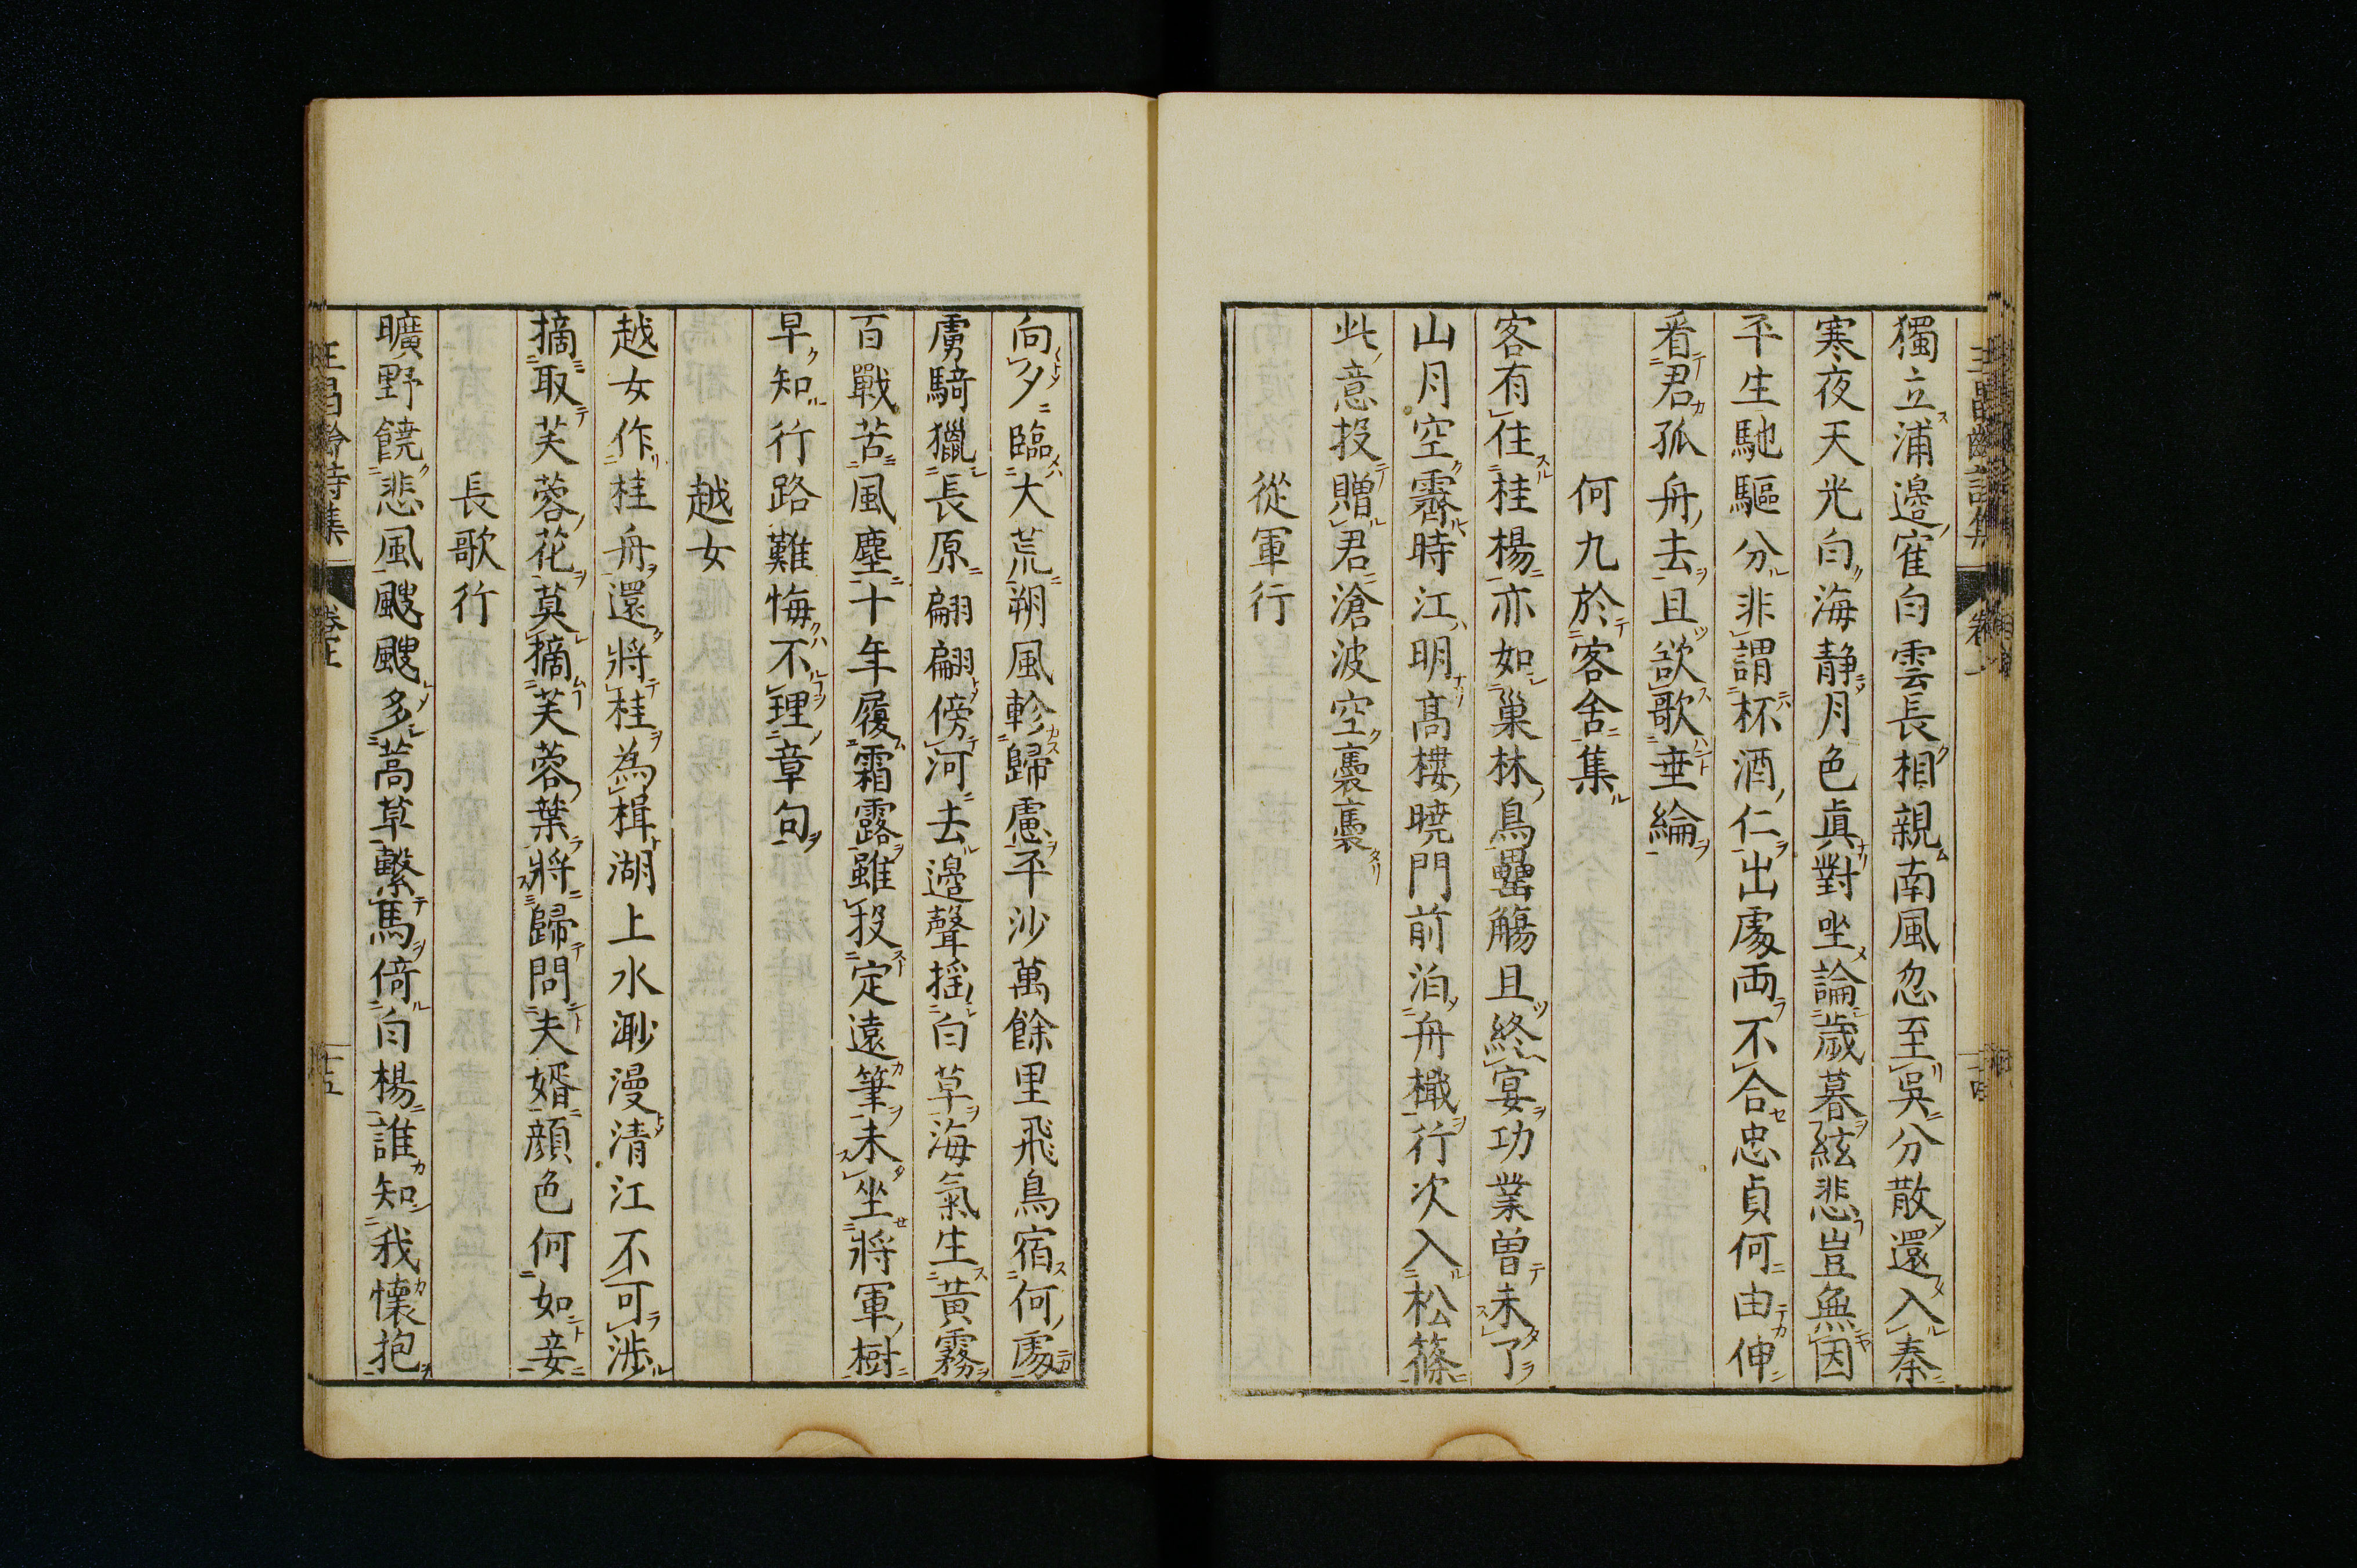 獨立浦邊寉白雲長相親南風忽至吳分散還入秦
寒夜天光白海静月色眞對坐論歲暮絃悲豈無因
平生馳驅分非謂杯酒仁出處兩不合忠貞何由伸
看君孤舟去且欲歌垂綸
何九於客舍集
客有住桂楊亦如巢林鳥罍觴且終宴功業曾未了
山月空霽時江明髙樓曉門前泊舟檝行次入松篠
此意投贈君滄波空裊裊
從軍行
向夕臨大荒朔風軫歸慮平沙萬餘里飛鳥宿何處
虜騎獵長原翩翩傍河去邊聲摇白草海氣生黃霧
百戰苦風塵十年履霜露雖投定遠筆未坐將軍樹
早知行路難悔不理章句
越女
越女作桂舟還將桂為楫湖上水渺漫清江不可涉
摘取芙蓉花莫摘芙蓉葉將歸問夫婿顔色何如妾
長歌行
曠野饒悲風颼颼多蒿草繫馬倚白楊誰知我懷抱
王昌齡詩集